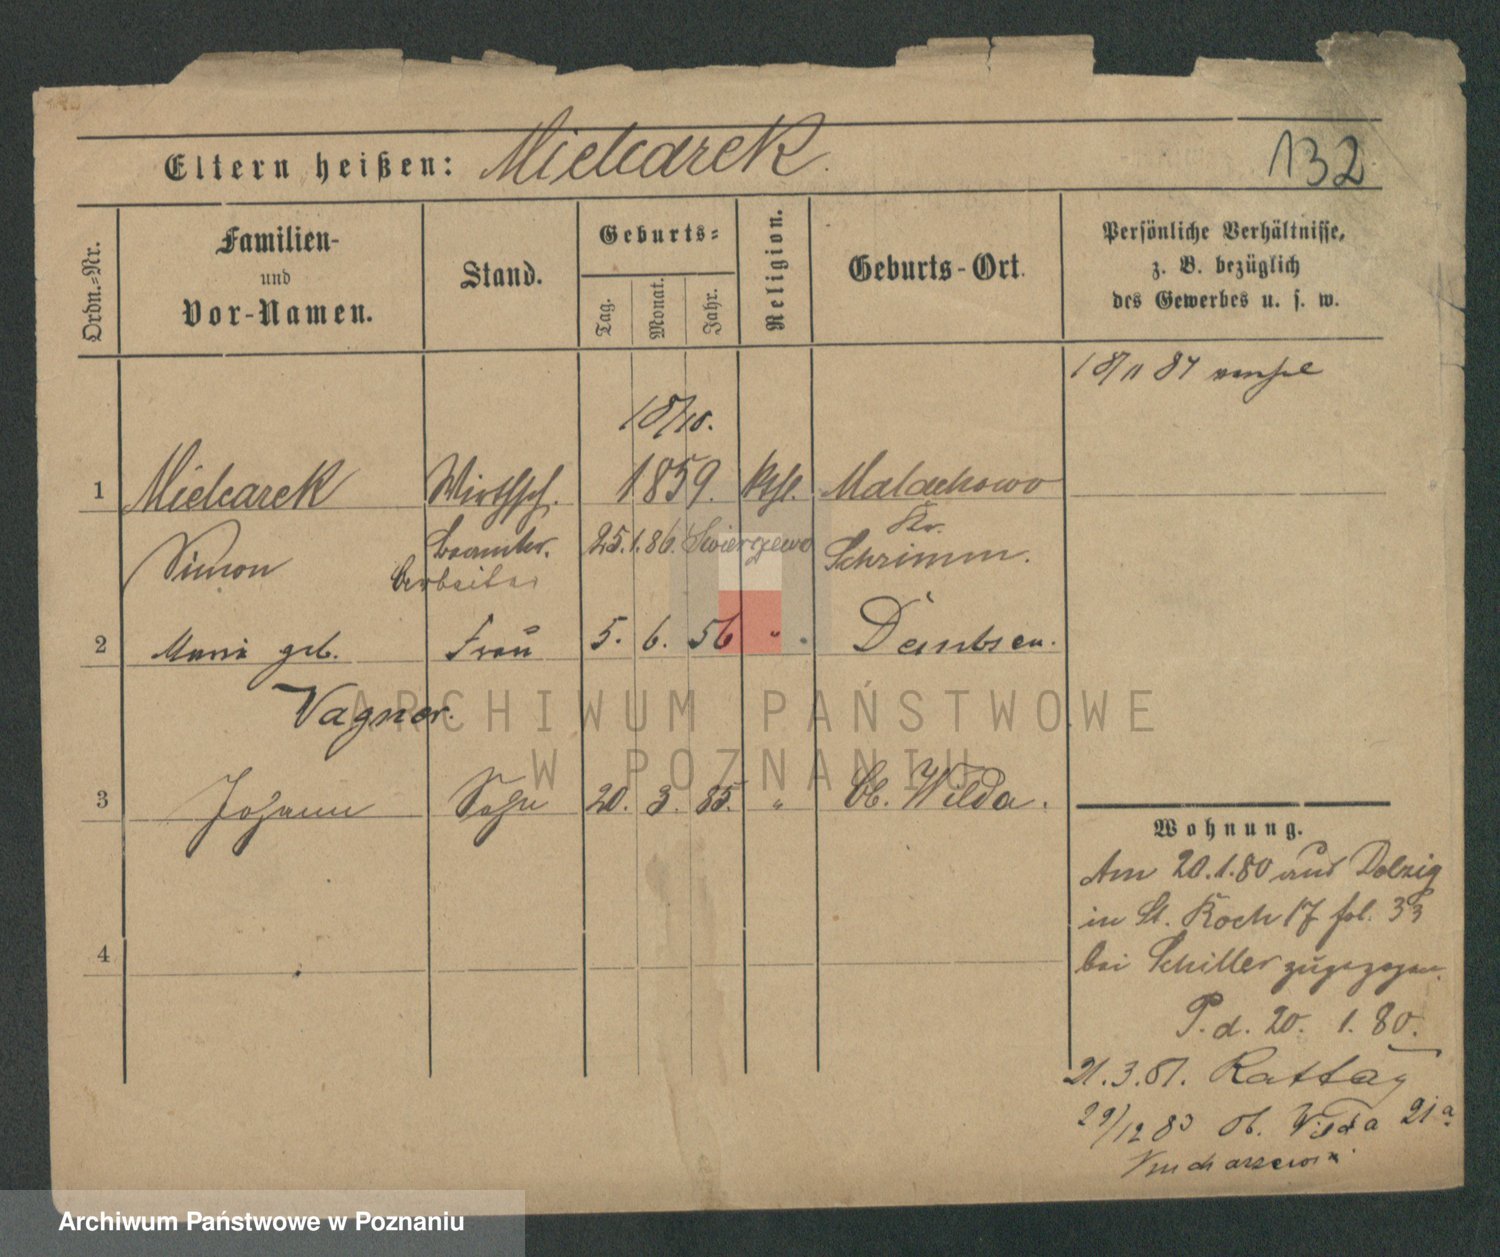 Eltern heißen: Mielcarek.
132
Ordn.-Nr.
Familien-
und
Vor-Namen.
Stand.
Geburts-
Tag.
Monat.
Jahr.
Religion.
Geburts-Ort.
Persönliche Verhältnisse,
z. B. bezüglich
des Gewerbes u. s. w.
18/10.
1 Mielcarek Wirthsch. 1859. kth. Malachowo
Simon beamter. 25.1.86. Kr.
Arbeiter Schrimm.
2 Maria geb. Frau 5. 6. 56 " . Dembsen.
Vagner.
3 Johann Sohn 20. 3. 85. " Ob. Wilda.
4
Wohnung.
Am 20.1.80 aus Dolzig
in St. Roch 17 fol. 33
bei Schiller zugezogen.
P. d. 20. 1. 80.
21.3.81. Rattay
29/12 83 Ob. Wilda 21a
ARCHIWUM PAŃSTWOWE
W POZNANIU
Archiwum Państwowe w Poznaniu